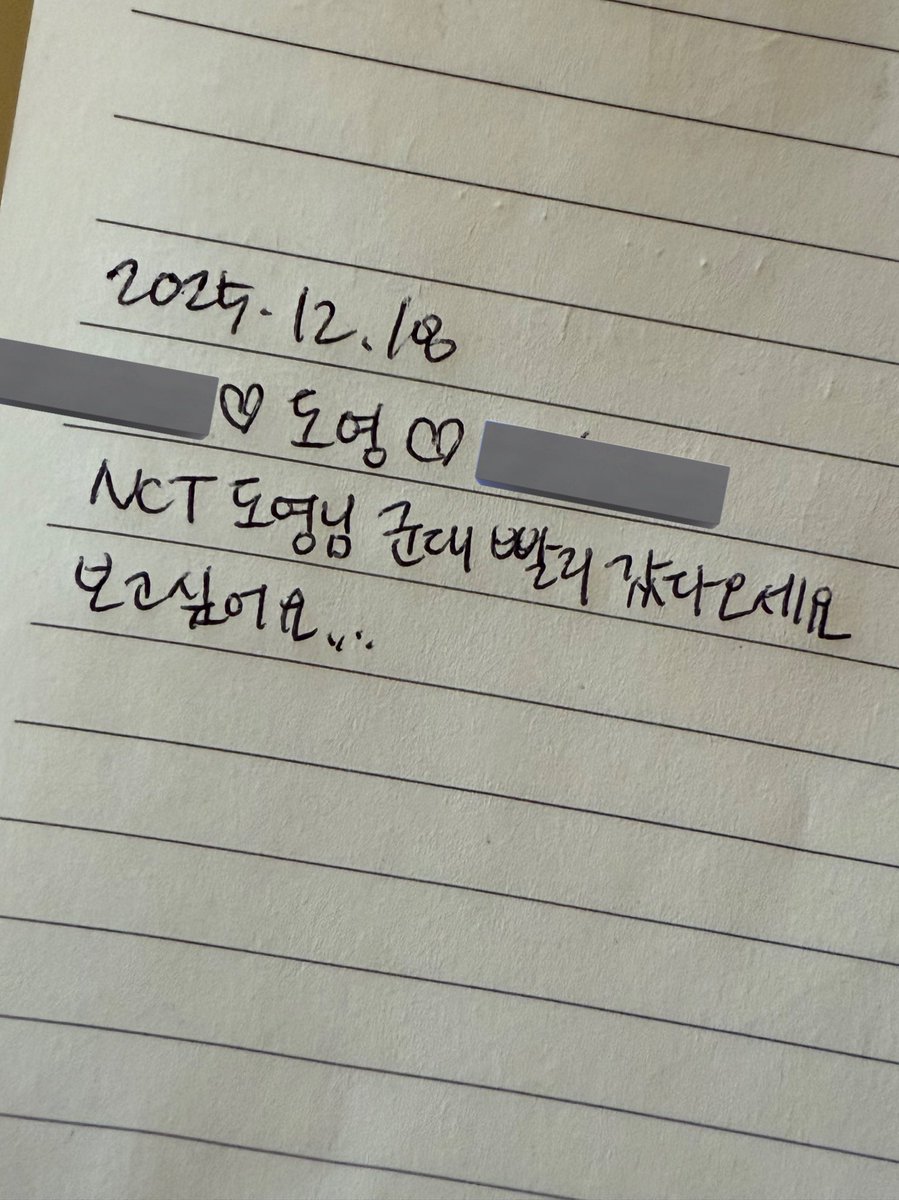 2025.12.18
♡ 도영 ♡
NCT 도영님 군대 빨리 갔다오세요
보고싶어요...